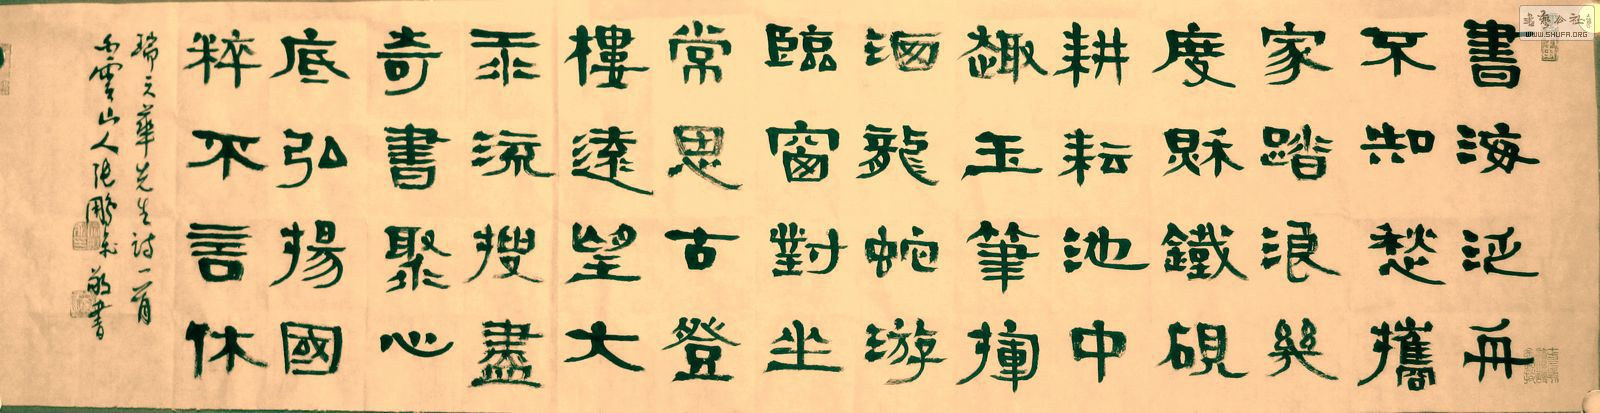 書海泛舟
不知愁攜
家踏浪幾
度秋鐵硯
耕耘池中
趣玉筆揮
洒龍蛇游
臨窗對坐
常思古登
樓遠望大
江流搜盡
奇書聚心
底弘揚國
粹不言休
瑞元華先生詩一首
雲山人張鵬敬書
书艺公社
WWW.SHUFA.ORG